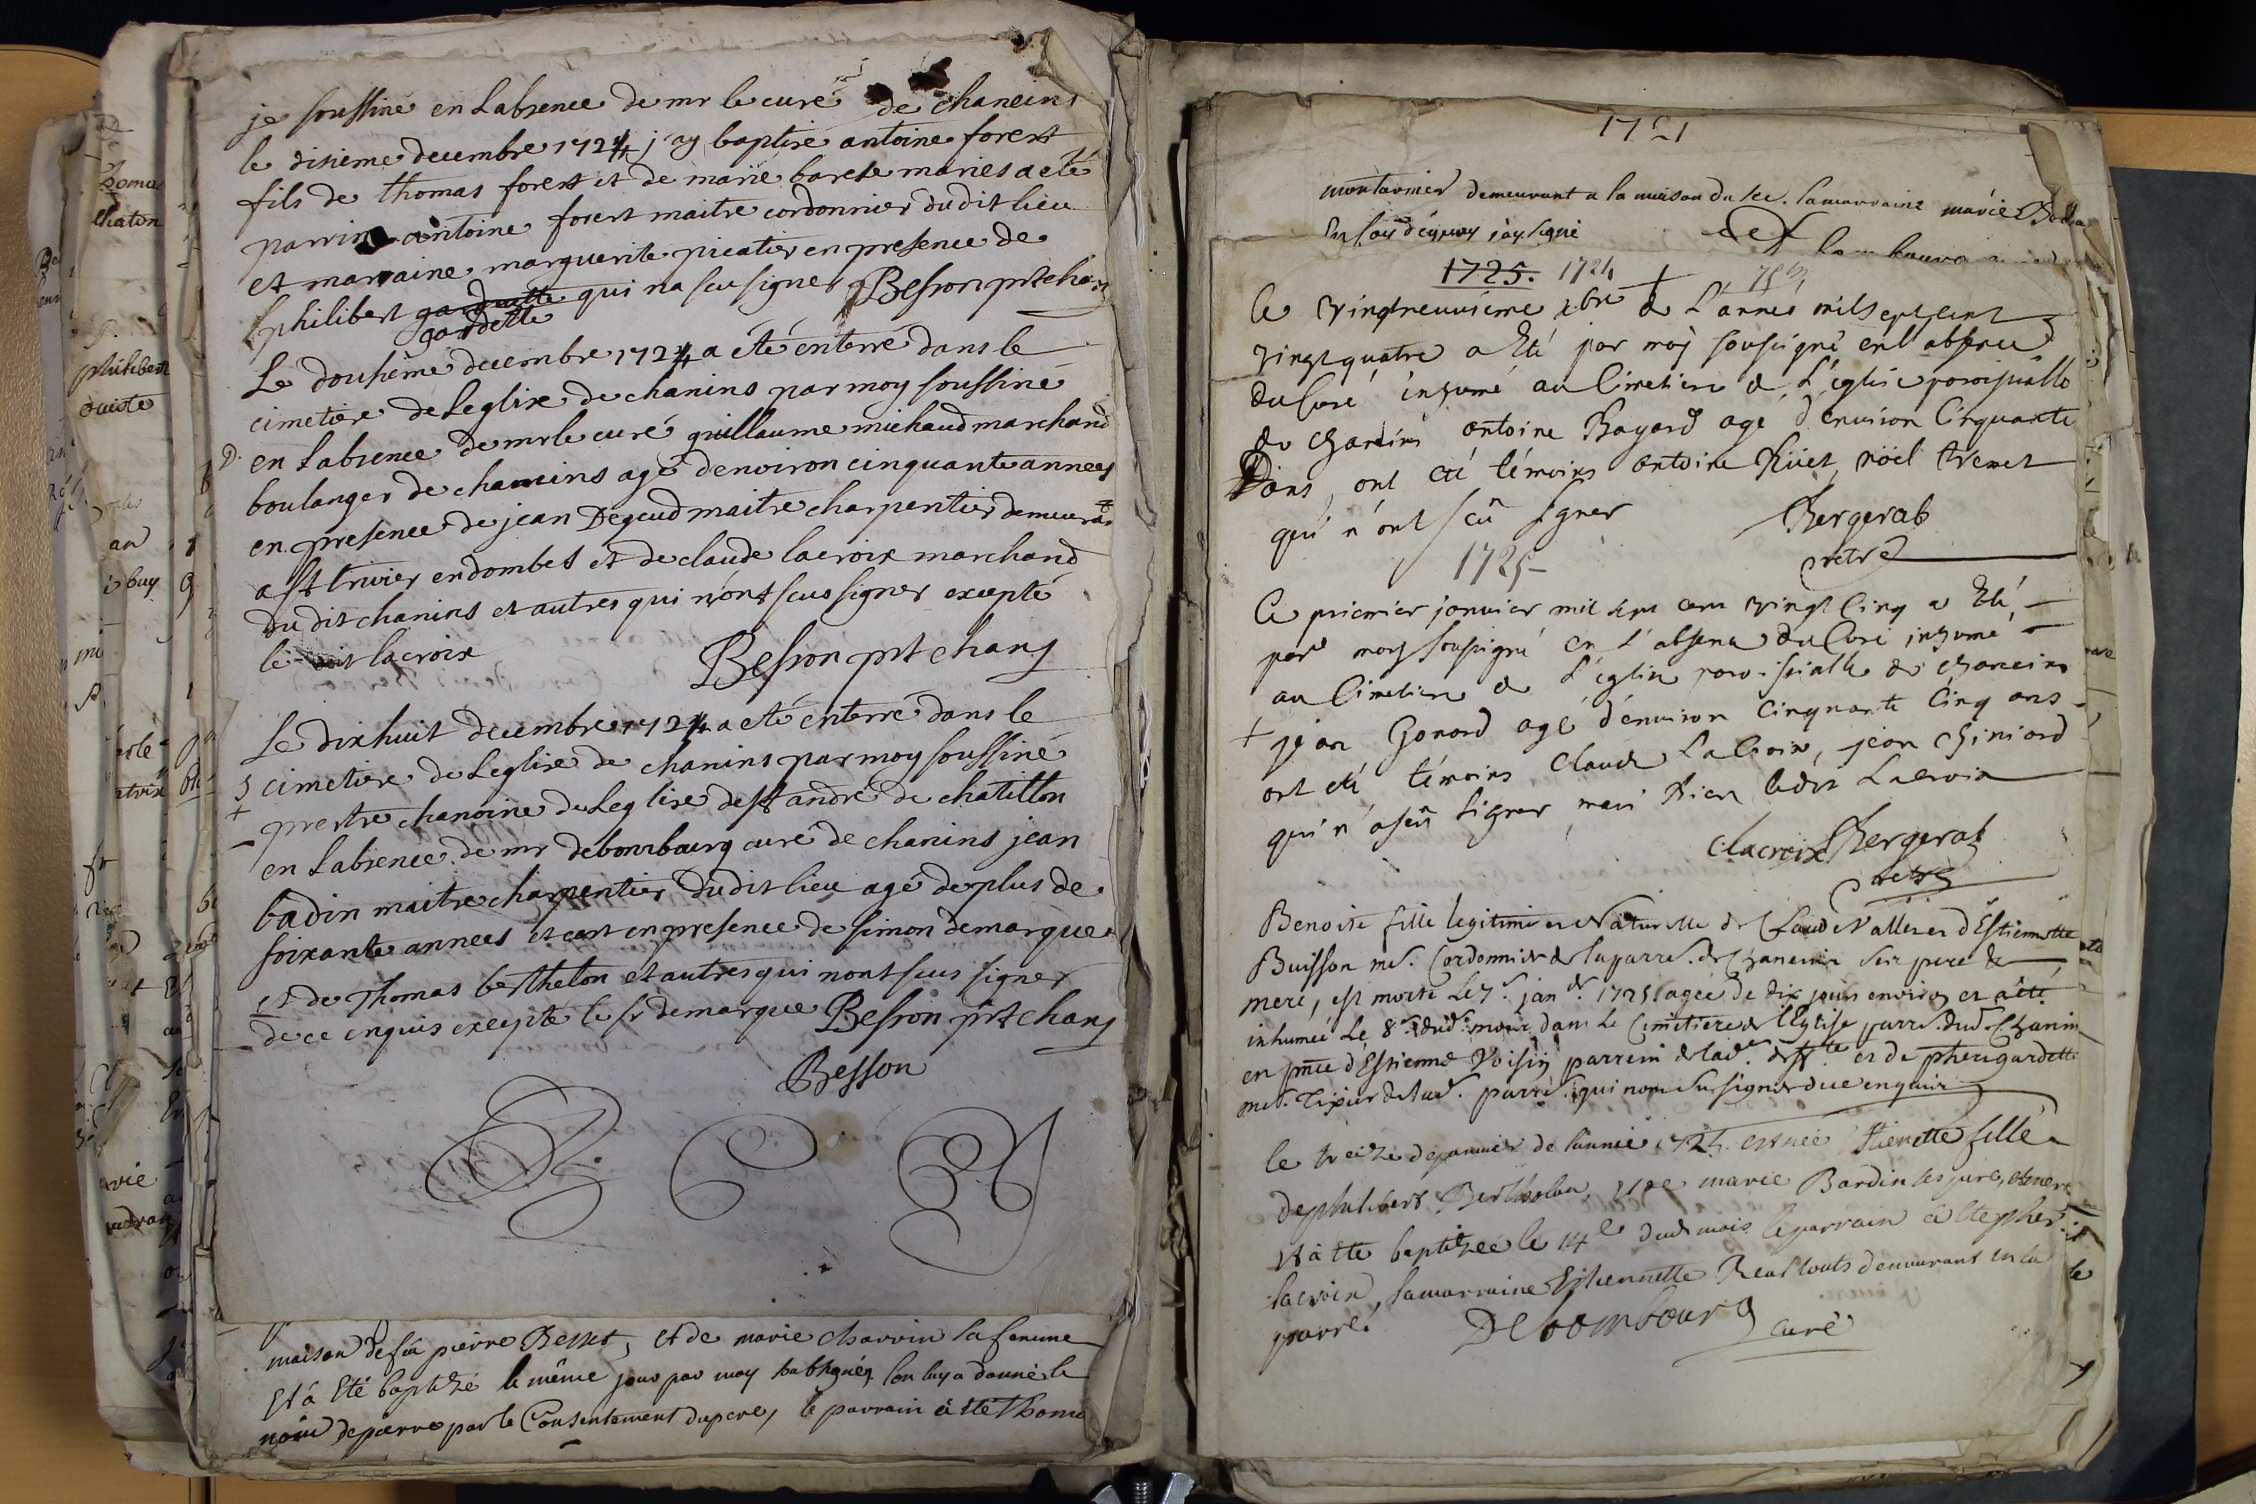 je soussiné en Labsence de mr le curé de chaneins
le disieme decembre 1724 j'ay baptisé antoine forest
fils de thomas forest et de marie barele mariés a eté
parrin antoine forest maitre cordonnier dudit lieu
et marraine marguerite picatier en presence de
philibert gardette qui na scu signer Besson prt chan
gardette
Le dousieme decembre 1724 a eté enterré dans le
cimetiere de Leglise de chanins par moy soussiné
D. en Labsence de mr le curé guillaume michaud marchand
boulanger de chaneins agé denviron cinquante annees
en presence de jean Degeud maitre charpentier demeurat
a st trivier en dombes et de claude lacroix marchand
du dit chanins et autres qui n'ont scus signer excepté
le dit lacroix Besson prt chang
Le dixhuit decembre 1724 a eté enterré dans le
cimetiere de Leglise de chanins par moy soussiné
prestre chanoine de Leglise de st andré de chatillon
en Labsence de mr debombourg curé de chanins jean
badin maitre charpentier dudit lieu agé de plus de
soixante annees et cest en presence de simon demarque
et de Thomas berthelon et autres qui nont scus signer
de ce enquis excepté le sr demarque Besson prt chang
Besson
maison de feu pierre Besset, et de marie charvin sa femme
Et a Eté baptizé le même jour par moy subsigné, lon luy a donné le
nom de pierre par le Consentement du pere, le parrain a ete Thoma
1721
montarnier demeurant a la maison du sr. la marraine marie
En foy déquoy j'ay signé
1725. 1724
Ce vingtneuvieme xbre de L'année mil sept cent
vingt quatre a Eté par moy soussigné en l'absence
du Curé inhumé au Cimetiere de L'église paroissialle
de chaneins antoine Bayard agé d'environ Cinquante
ans, ont eté témoins antoine Rüet, noël tremet
qui n'ont sçu signer Chergerat
prêtre
1725
Ce premier janvier mil sept cent vingt Cinq a Eté
par moy soussigné en L'absence du Curé inhumé
au Cimetiere de L'église paroissialle de chaneins
+ jean Gonard agé d'environ Cinquante Cinq ans
ont eté témoins Claude LaCroix, jean chiniard
qui n'a sçu signer, mais bien ledit Lacroix
Clacroix Chergerat
prêtre
Benoite fille legitime et Naturelle de Claude Vallier et d'Estiennette
Buisson me. Cordonnier de la parre. de Chaneins ses pere &
mere, est morte Le 7e. janer. 1725 agée de dix jours environ et a été
inhumée Le 8e. dud. mois dans Le Cimetiere de l'Eglise parre. dud. Chanin
en pnce d'Estienne Voisin parrein de lad. et de pher gardette
me. Tixier de lad. parre. qui nont Su signer de ce enquis
le treize de janvier de l'année 1725. est née Etienette fille
de philibert Berthelon, et de marie Bardin ses pere, et mere
et a ete baptizée le 14e dud mois le parrain a ete pher
lacroix, la marraine Estiennette demeurant en la
parre. Debombourg curé